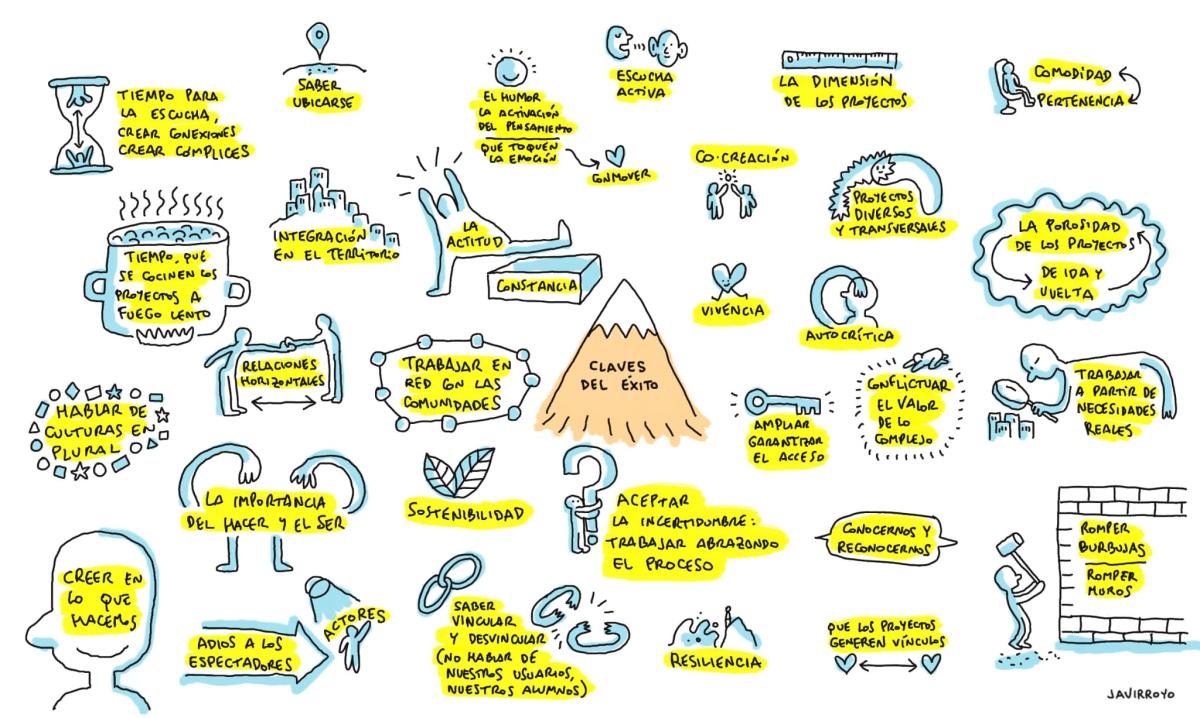 TIEMPO PARA
LA ESCUCHA,
CREAR CONEXIONES
CREAR CÓMPLICES
SABER
UBICARSE
EL HUMOR
LA ACTIVACIÓN
DEL PENSAMIENTO
QUE TOQUEN
LA EMOCIÓN
CONMOVER
ESCUCHA
ACTIVA
LA DIMENSIÓN
DE LOS PROYECTOS
COMODIDAD
PERTENENCIA
TIEMPO, QUE
SE COCINEN LOS
PROYECTOS A
FUEGO LENTO
INTEGRACIÓN
EN EL TERRITORIO
LA
ACTITUD
CONSTANCIA
CO-CREACIÓN
PROYECTOS
DIVERSOS
Y TRANSVERSALES
LA POROSIDAD
DE LOS PROYECTOS
DE IDA Y
VUELTA
VIVENCIA
AUTOCRÍTICA
RELACIONES
HORIZONTALES
TRABAJAR EN
RED CON LAS
COMUNIDADES
CLAVES
DEL ÉXITO
AMPLIAR
GARANTIZAR
EL ACCESO
CONFLICTUAR
EL VALOR
DE LO
COMPLEJO
TRABAJAR
A PARTIR DE
NECESIDADES
REALES
HABLAR DE
CULTURAS EN
PLURAL
LA IMPORTANCIA
DEL HACER Y EL SER
SOSTENIBILIDAD
ACEPTAR
LA INCERTIDUMBRE:
TRABAJAR ABRAZANDO
EL PROCESO
CONOCERNOS Y
RECONOCERNOS
ROMPER
BURBUJAS
ROMPER
MUROS
CREER EN
LO QUE
HACEMOS
ADIOS A LOS
ESPECTADORES
ACTORES
SABER
VINCULAR
Y DESVINCULAR
(NO HABLAR DE
NUESTROS USUARIOS,
NUESTROS ALUMNOS)
RESILIENCIA
QUE LOS PROYECTOS
GENEREN VÍNCULOS
JAVIRROYO